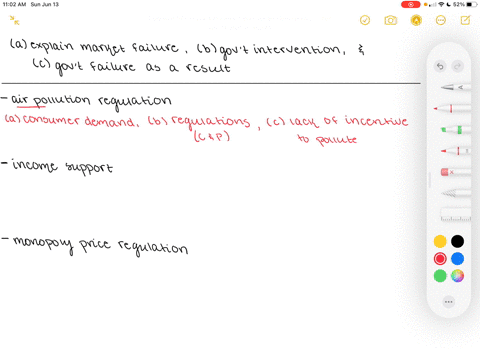 11:02 AM Sun Jun 13
52%
(a) explain market failure, (b) gov't intervention, &
(c) gov't failure as a result
- air pollution regulation
(a) consumer demand, (b) regulations, (c) lack of incentive
(C & P) to pollute
- income support
- monopoly price regulation